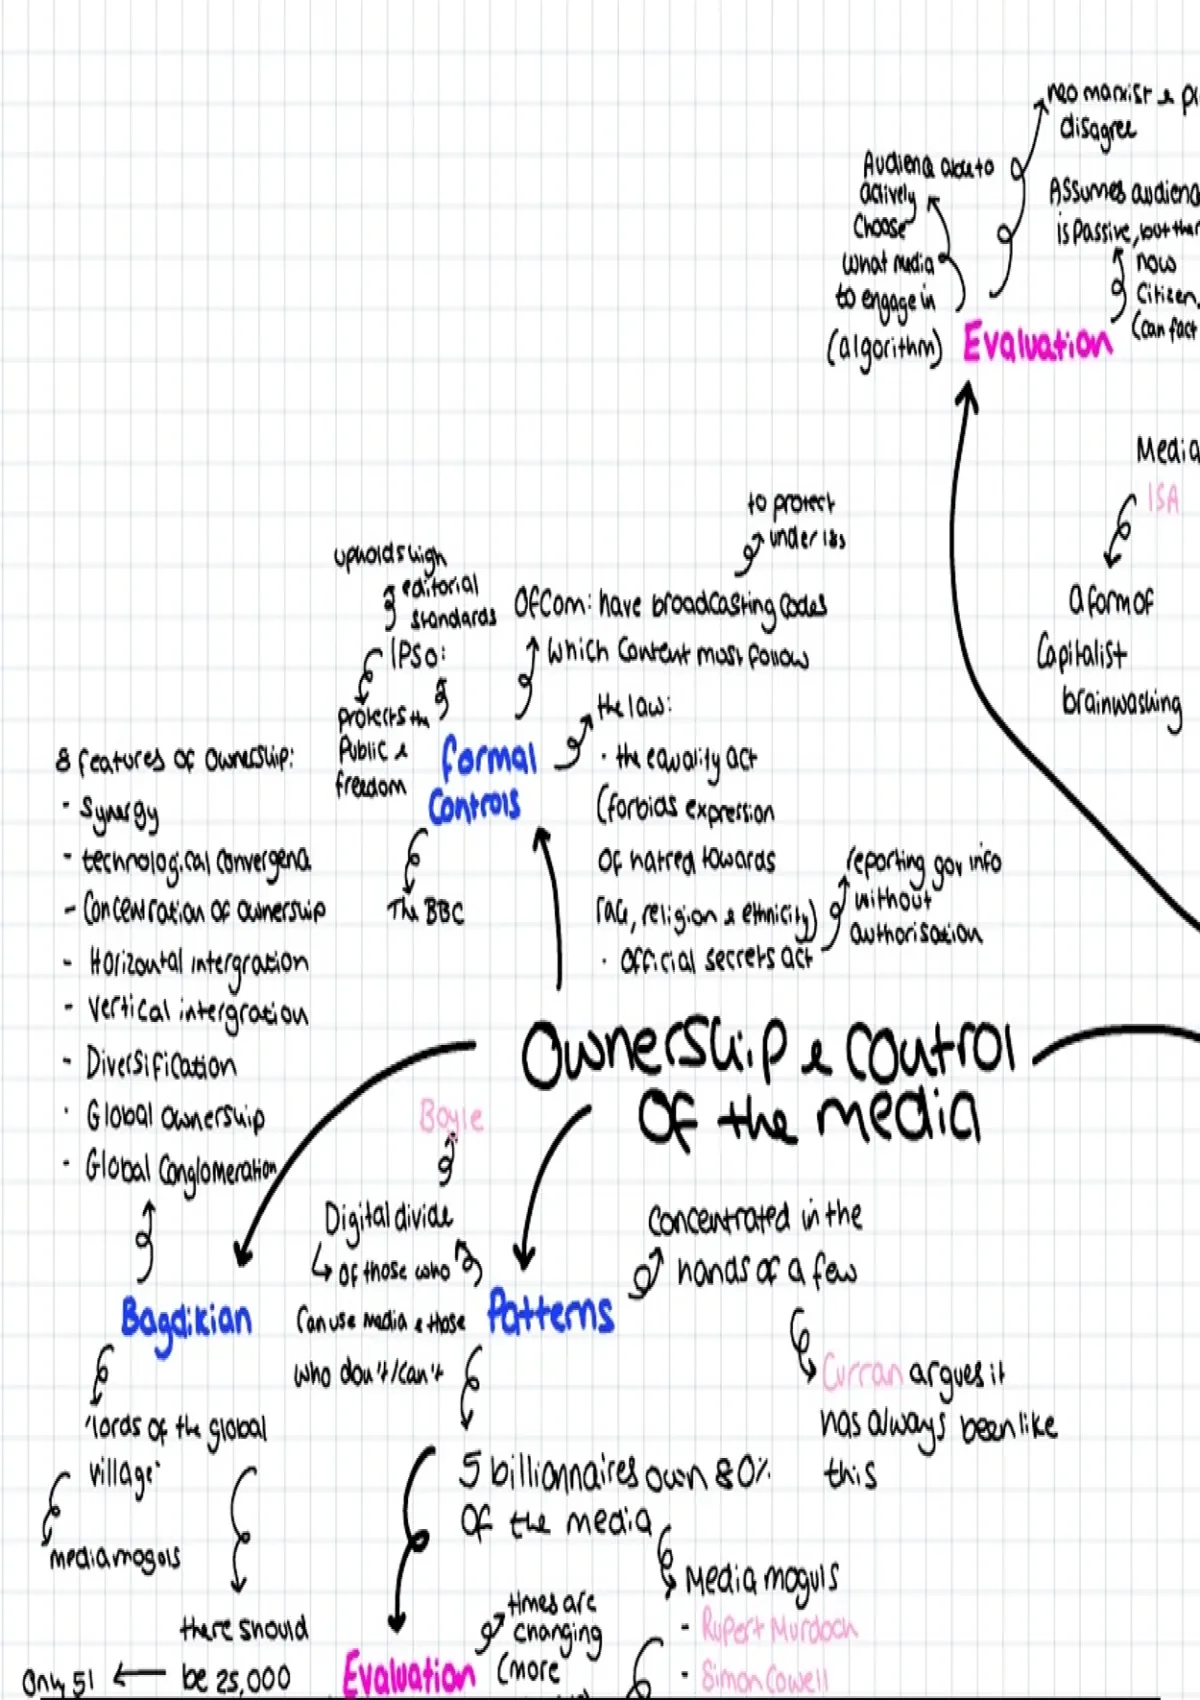 neo marxist &
disagree
Audience able to
actively
choose
what media
to engage in
(algorithm)
Assumes
is passive, but
now
citizen
(can fact
Evaluation
Media
ISA
a form of
capitalist
brainwashing
to protect
under 18s
upholds high
editorial
standards
IPSO:
protects the
public &
freedom
OfCom: have broadcasting codes
which content must follow
formal
controls
The BBC
the law:
· the equality act
(forbids expression
of hatred towards
race, religion & ethnicity)
· official secrets act
reporting gov info
without
authorisation
8 features of ownership:
- Synergy
- technological convergence
- Concentration of ownership
- Horizontal intergration
- Vertical intergration
- Diversification
· Global ownership
· Global Conglomeration
Ownership & control
of the media
Boyle
Digital divide
of those who
can use media & those
who don't/can't
Bagdikian
Patterns
concentrated in the
hands of a few
Curran argues it
has always been like
this
'lords of the global
village'
media mogols
there should
be 25,000
Only 51
5 billionnaires own 80%
of the media
Media moguls
- Rupert Murdoch
- Simon Cowell
Evaluation
times are
changing
(more